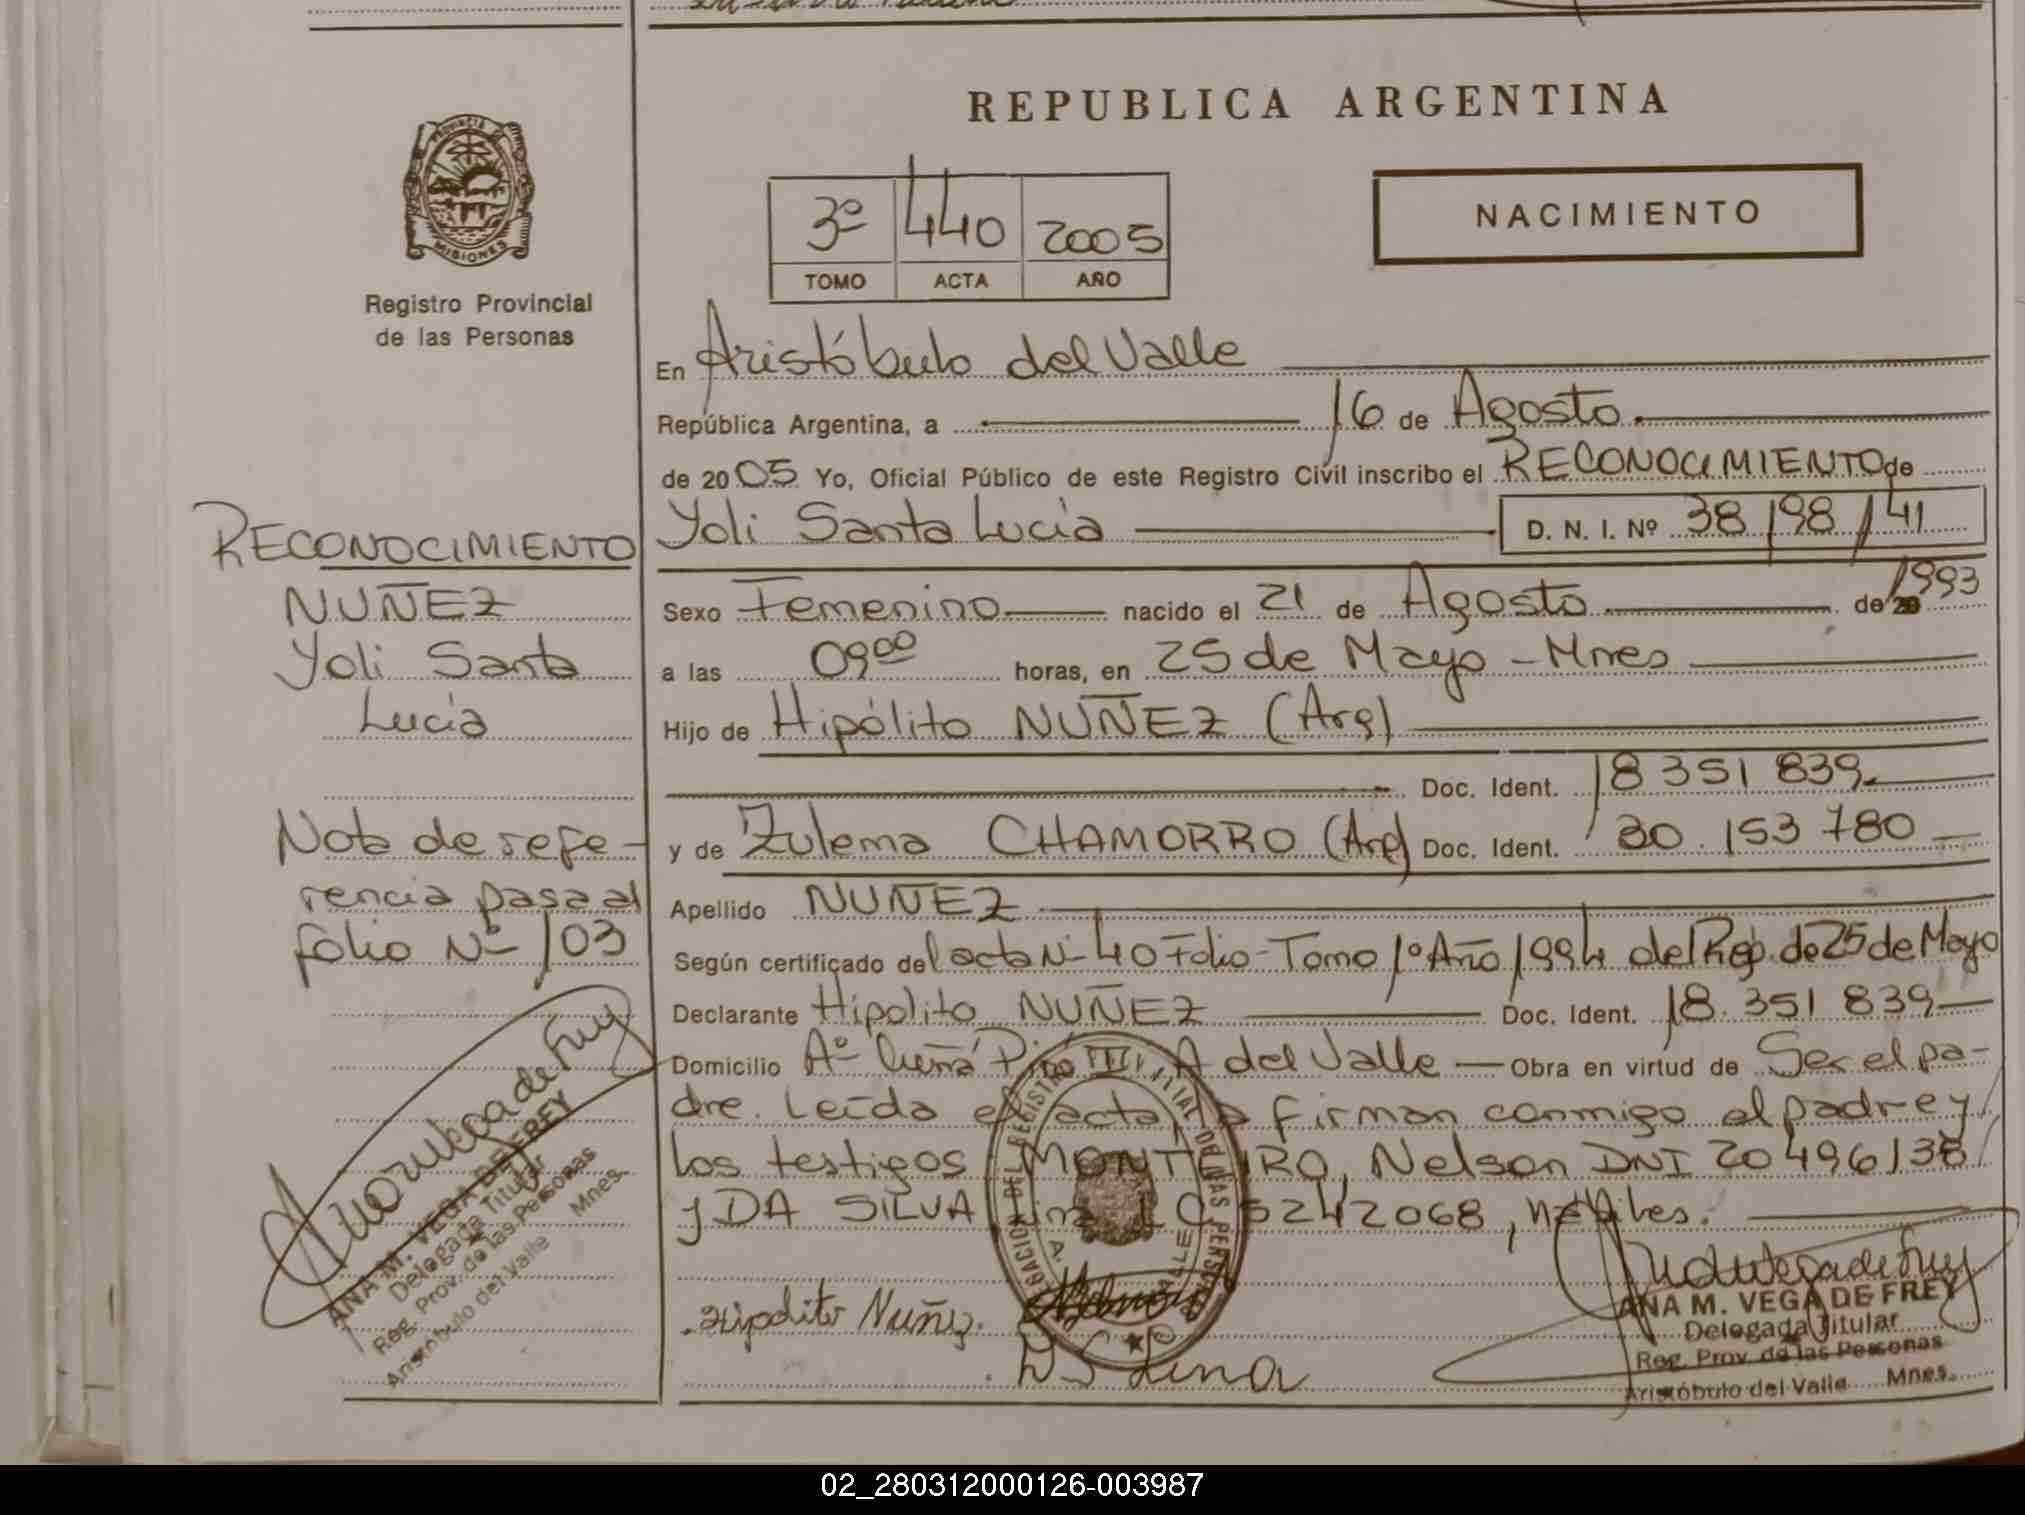 REPUBLICA ARGENTINA
PROVINCIA DE
MISIONES
Registro Provincial
de las Personas
3º 440 2005
TOMO ACTA AÑO
NACIMIENTO
En Aristóbulo del Valle
República Argentina, a 16 de Agosto.
de 2005 Yo, Oficial Público de este Registro Civil inscribo el RECONOCIMIENTO de
Yoli Santa Lucía D. N. I. Nº 38 198 141
Sexo Femenino nacido el 21 de Agosto de 1993
a las 09 00 horas, en 25 de Mayo - Mnes
Hijo de Hipólito NUÑEZ (Arg)
Doc. Ident. 18 351 839.
y de Zulema CHAMORRO (Arg) Doc. Ident. 30.153 780
Apellido NUÑEZ
Según certificado del acta Nº 40 Folio - Tomo 1º Año 1994 del Reg. de 25 de Mayo
Declarante Hipólito NUÑEZ Doc. Ident. 18.351 839
Domicilio Aº A del Valle Obra en virtud de Ser el pa-
dre. Leída el acta la firman conmigo el padre y
los testigos MONTEIRO, Nelson DNI 20 496 138
y DA SILVA LC 5242068, hábiles.
Hipolito Nuñez.
D S Lina
ANA M. VEGA DE FREY
Delegada Titular
Reg. Prov. de las Personas
Aristóbulo del Valle Mnes.
RECONOCIMIENTO
NUÑEZ
Yoli Santa
Lucía
Nota de refe-
rencia pasa al
folio Nº 103
ANA M. VEGA DE FREY
Delegada Titular
Reg. Prov. de las Personas
Aristóbulo del Valle Mnes.
02_280312000126-003987